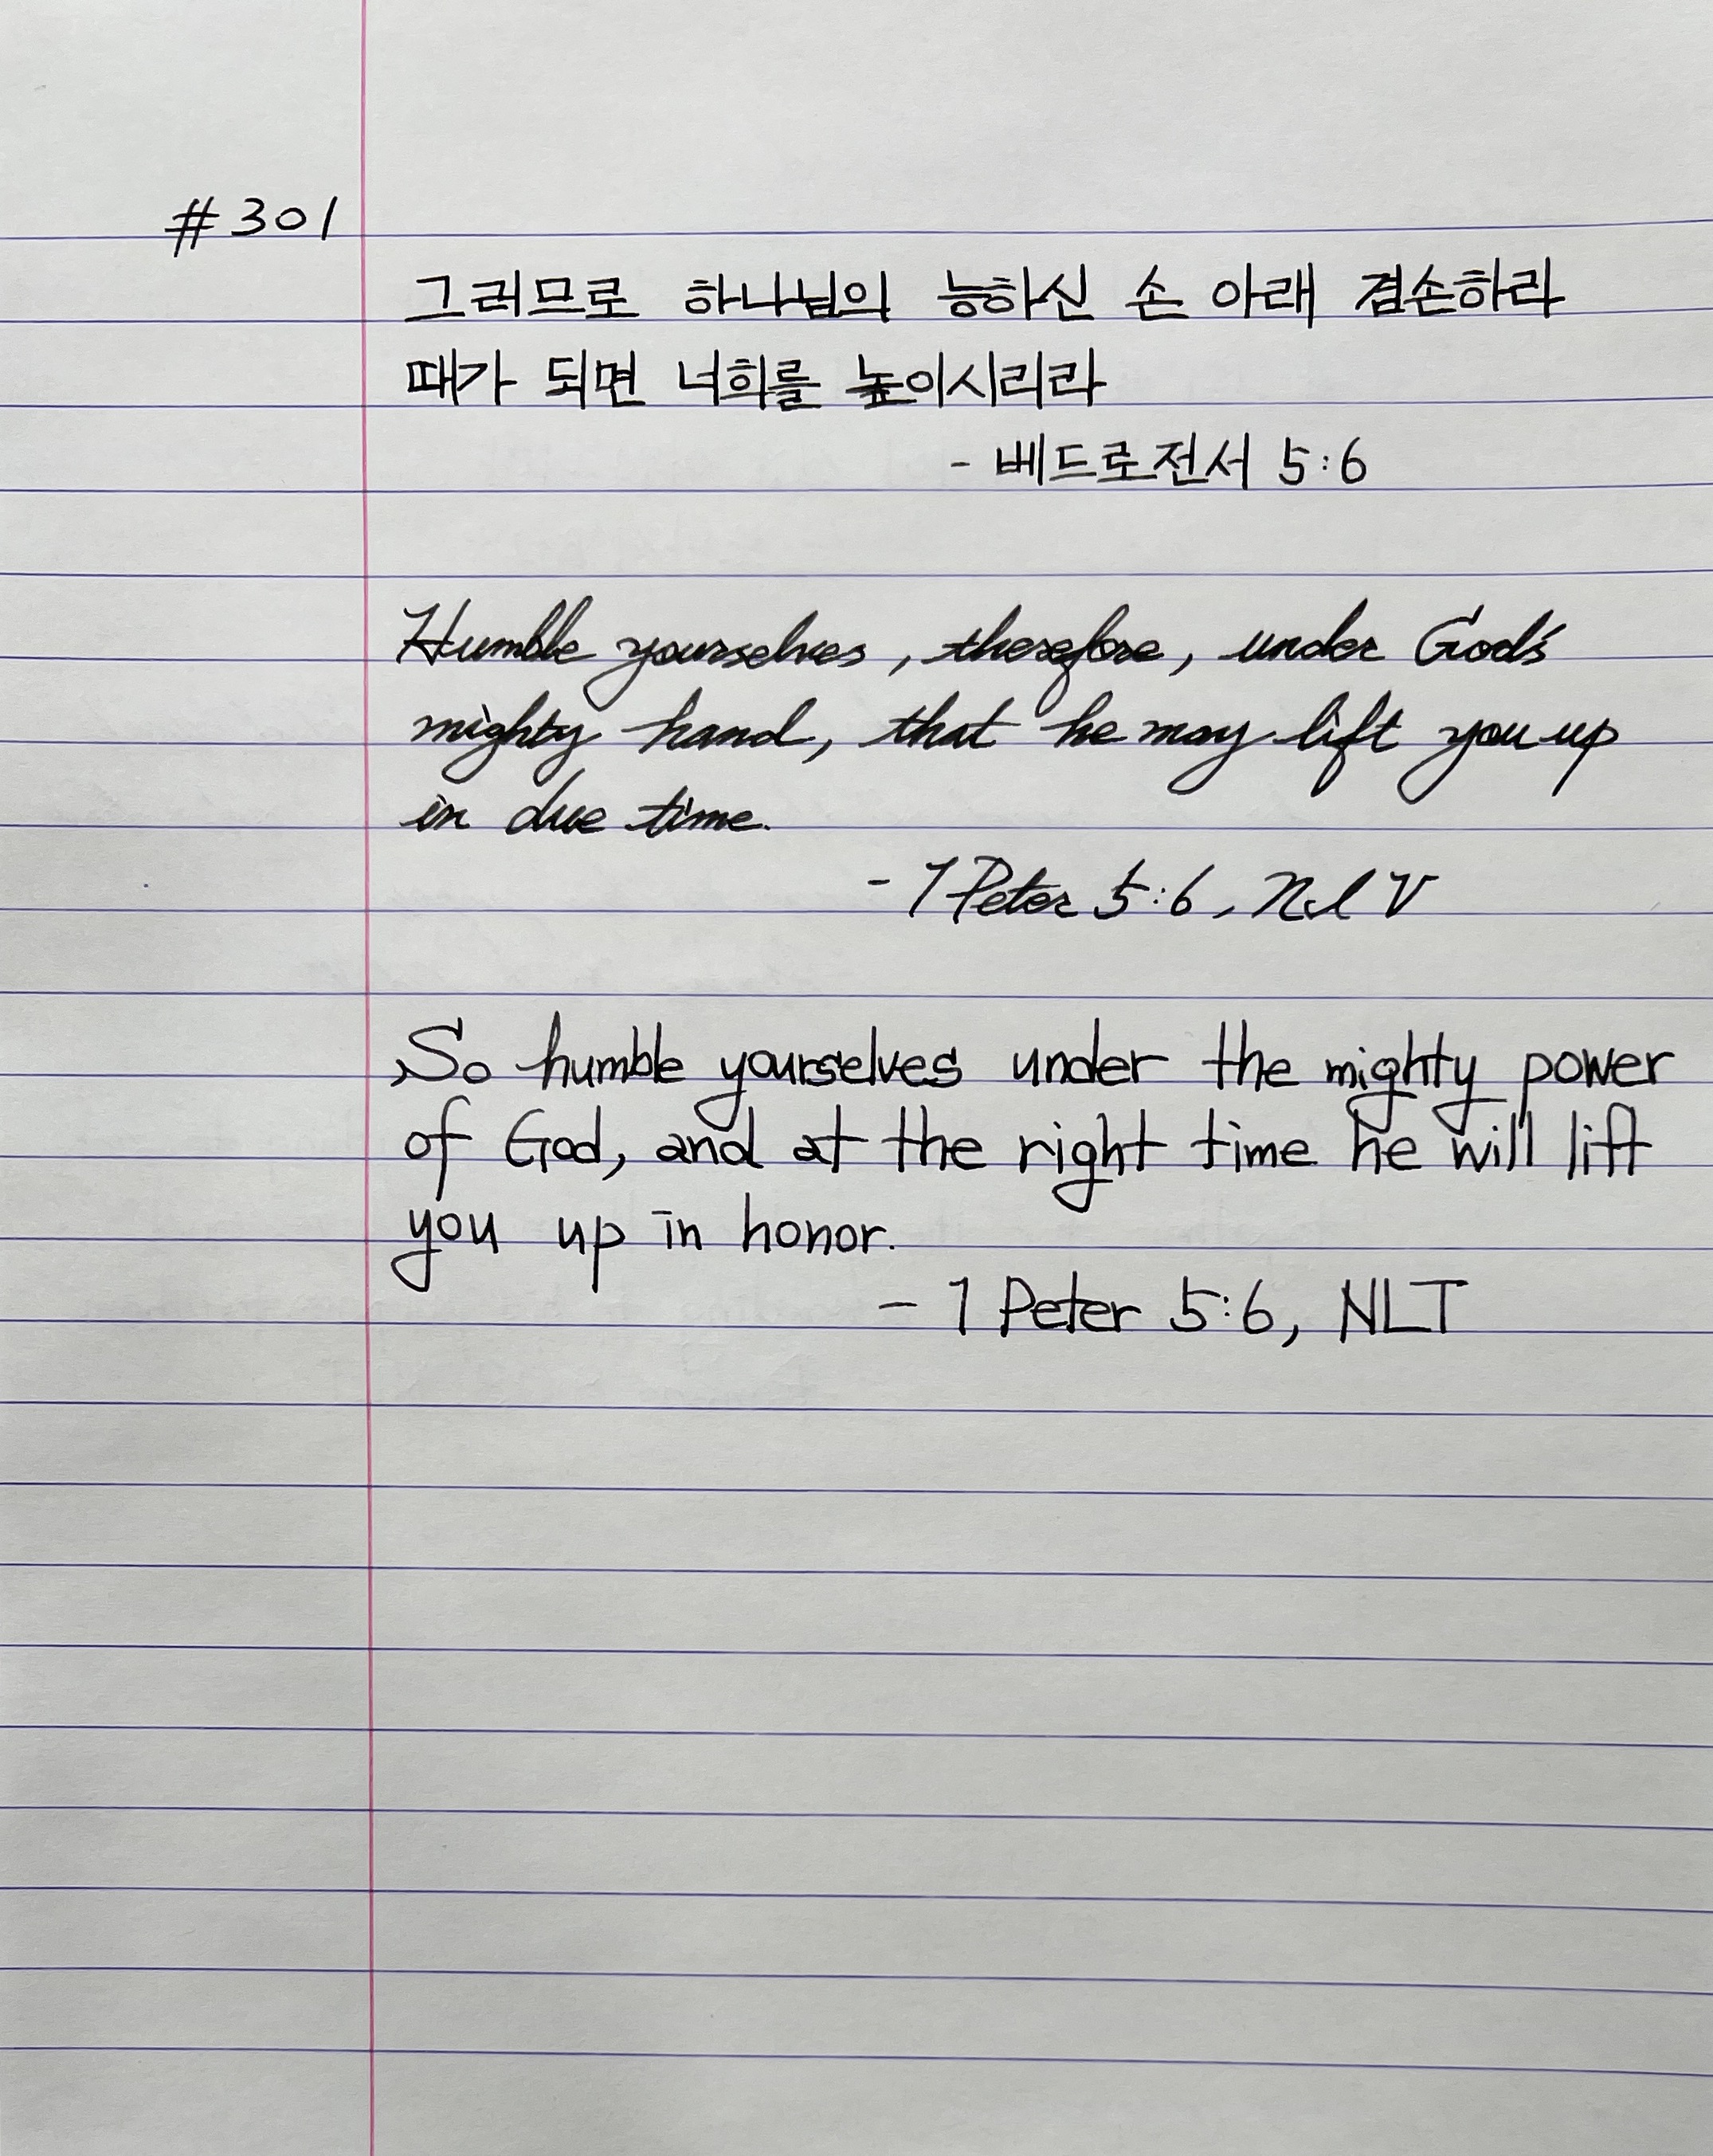 #301
그러므로 하나님의 능하신 손 아래 겸손하라
때가 되면 너희를 높이시리라
- 베드로전서 5:6
Humble yourselves, therefore, under God's
mighty hand, that he may lift you up
in due time.
- 1 Peter 5:6, NIV
So humble yourselves under the mighty power
of God, and at the right time he will lift
you up in honor.
- 1 Peter 5:6, NLT